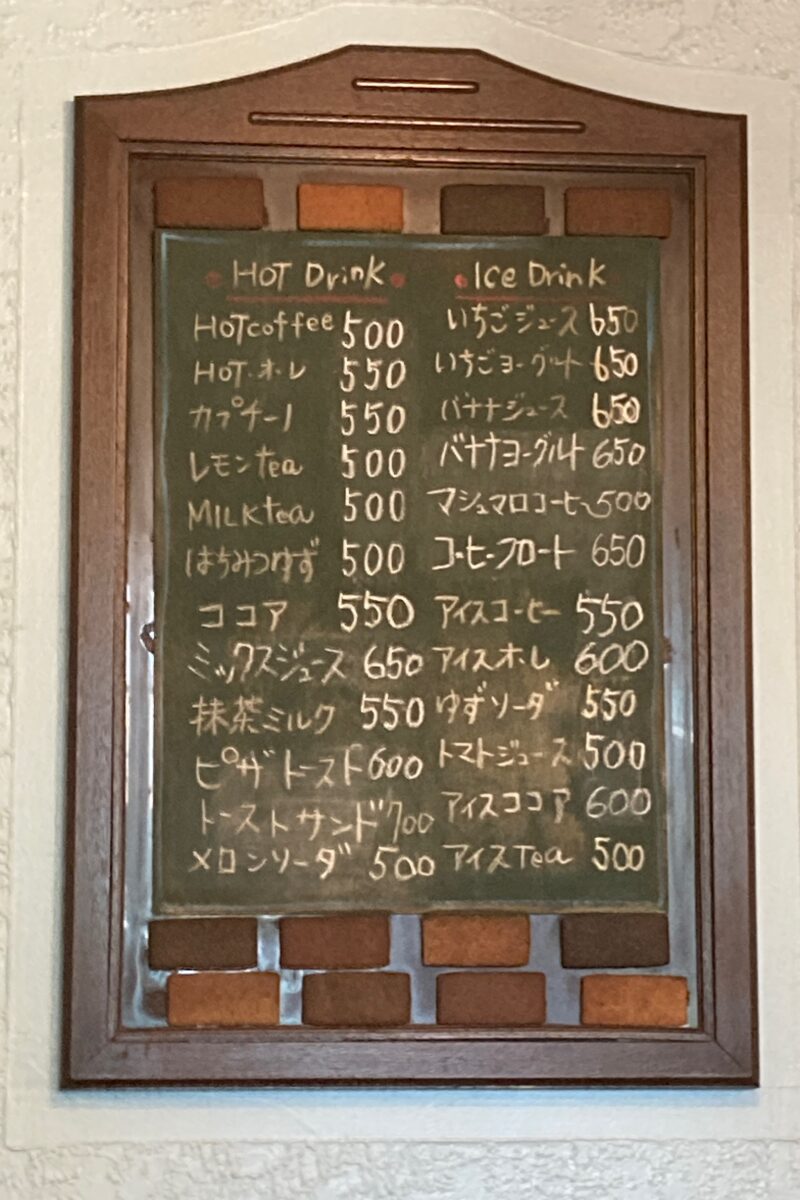 HOT Drink
HOTcoffee 500
HOT・オ・レ 550
カプチーノ 550
レモンtea 500
MILKtea 500
はちみつゆず 500
ココア 550
ミックスジュース 650
抹茶ミルク 550
ピザトースト 600
トーストサンド 700
メロンソーダ 500
Ice Drink
いちごジュース 650
いちごヨーグルト 650
バナナジュース 650
バナナヨーグルト 650
マシュマロコーヒー 500
コーヒーフロート 650
アイスコーヒー 550
アイスオ・レ 600
ゆずソーダ 550
トマトジュース 500
アイスココア 600
アイスTea 500